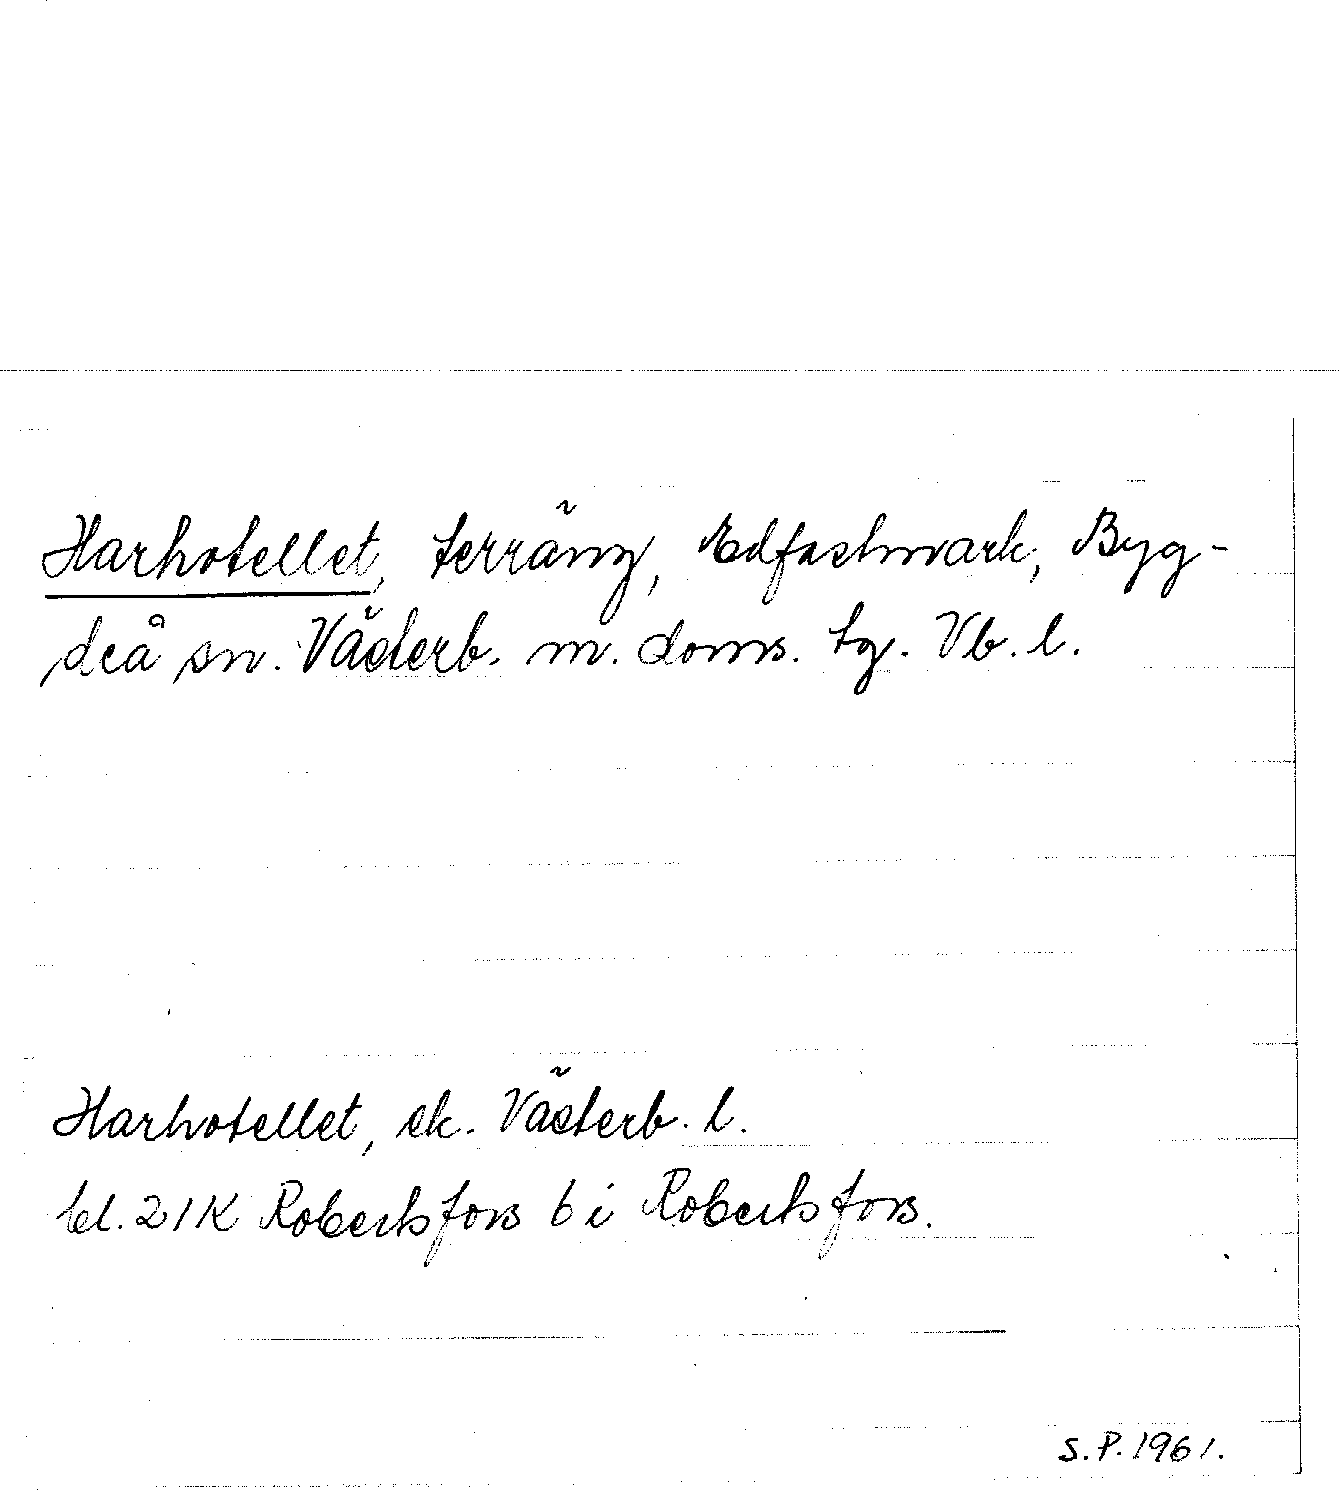 Harhotellet, terräng, Edfastmark, Byg-
deå sn. Västerb. m. doms. tg. Vb. l.
Harhotellet, ek. Västerb. l.
bl. 21K Robertsfors 6 i Robertsfors.
S.P. 1961.